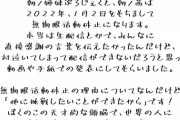 朝ノ姉妹ぷろじぇくと、朝ノ茜は
2022年1月2日をもちまして
無期限活動休止になります。
本当は生配信とかで、みんなに
直接感謝の言葉を伝えたかったんだけど、
対泣いてしまって配信ができないだろうと思っ
動画や手紙での発表にしてもらいました。
無期限活動休止の理由についてなんだけど
「他に挑戦したいことができたから」です！
ぼくのこの天才的な頭脳で、世界の人に